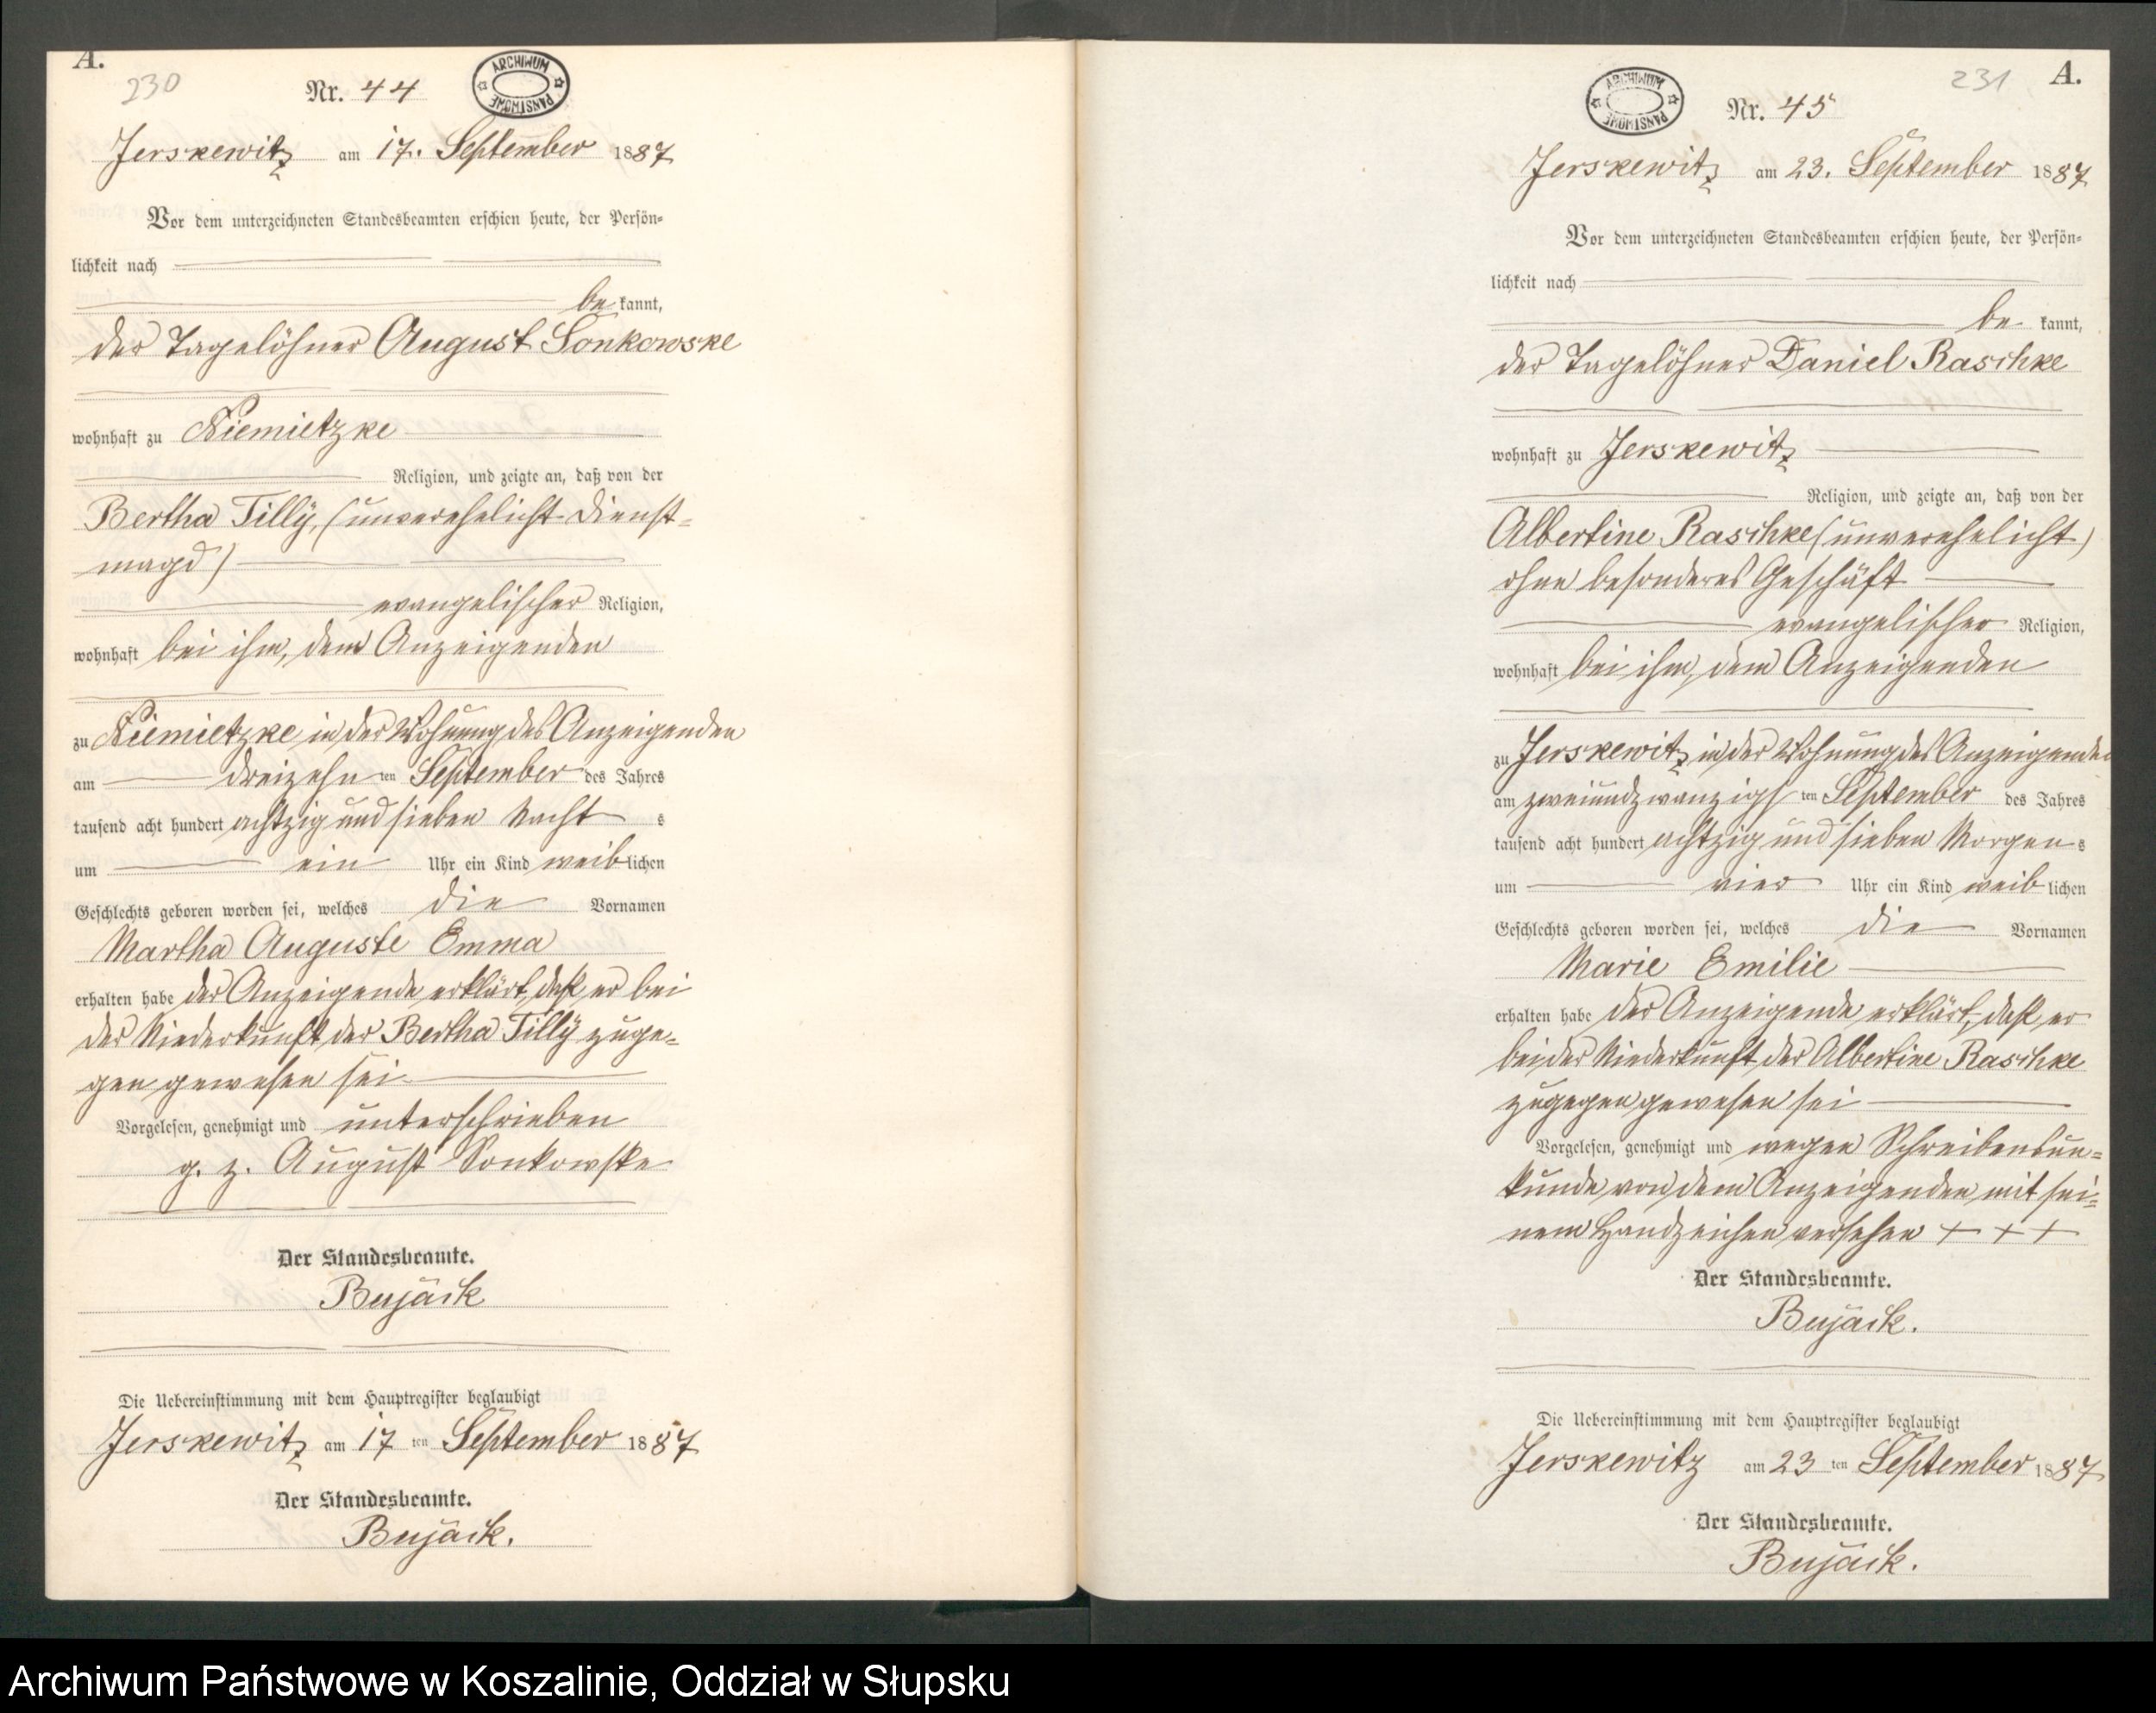 A.
230
Nr. 44
ARCHIWUM PAŃSTWOWE
Jerskewitz am 17. September 1887
Vor dem unterzeichneten Standesbeamten erschien heute, der Persön=
lichkeit nach
be kannt,
der Tagelöhner August Sonkowske
wohnhaft zu Niemietzke
Religion, und zeigte an, daß von der
Bertha Tilly, (unverehelicht Dienst=
magd)
evangelischer Religion,
wohnhaft bei ihm, dem Anzeigenden
zu Niemietzke in der Wohnung des Anzeigenden
am dreizehn ten September des Jahres
tausend acht hundert achtzig und sieben Nacht s
um ein Uhr ein Kind weib lichen
Geschlechts geboren worden sei, welches die Vornamen
Martha Auguste Emma
erhalten habe der Anzeigende erklärt, daß er bei
der Niederkunft der Bertha Tilly zuge=
gen gewesen sei.
Vorgelesen, genehmigt und unterschrieben
g. z. August Sonkowske
Der Standesbeamte.
Bujack
Die Uebereinstimmung mit dem Hauptregister beglaubigt
Jerskewitz am 17 ten September 1887
Der Standesbeamte.
Bujack.
231
A.
ARCHIWUM PAŃSTWOWE
Nr. 45
Jerskewitz am 23. September 1887
Vor dem unterzeichneten Standesbeamten erschien heute, der Persön=
lichkeit nach
be kannt,
der Tagelöhner Daniel Raschke
wohnhaft zu Jerskewitz
Religion, und zeigte an, daß von der
Albertine Raschke (unverehelicht)
ohne besonderes Geschäft
evangelischer Religion,
wohnhaft bei ihm, dem Anzeigenden
zu Jerskewitz in der Wohnung des Anzeigenden
am zweiundzwanzigs ten September des Jahres
tausend acht hundert achtzig und sieben Morgen s
um vier Uhr ein Kind weib lichen
Geschlechts geboren worden sei, welches die Vornamen
Marie Emilie
erhalten habe der Anzeigende erklärt, daß er
bei der Niederkunft der Albertine Raschke
zugegen gewesen sei
Vorgelesen, genehmigt und wegen Schreibensun=
kunde von dem Anzeigenden mit sei=
nem Handzeichen versehen + + +
Der Standesbeamte.
Bujack.
Die Uebereinstimmung mit dem Hauptregister beglaubigt
Jerskewitz am 23 ten September 1887
Der Standesbeamte.
Bujack.
Archiwum Państwowe w Koszalinie, Oddział w Słupsku